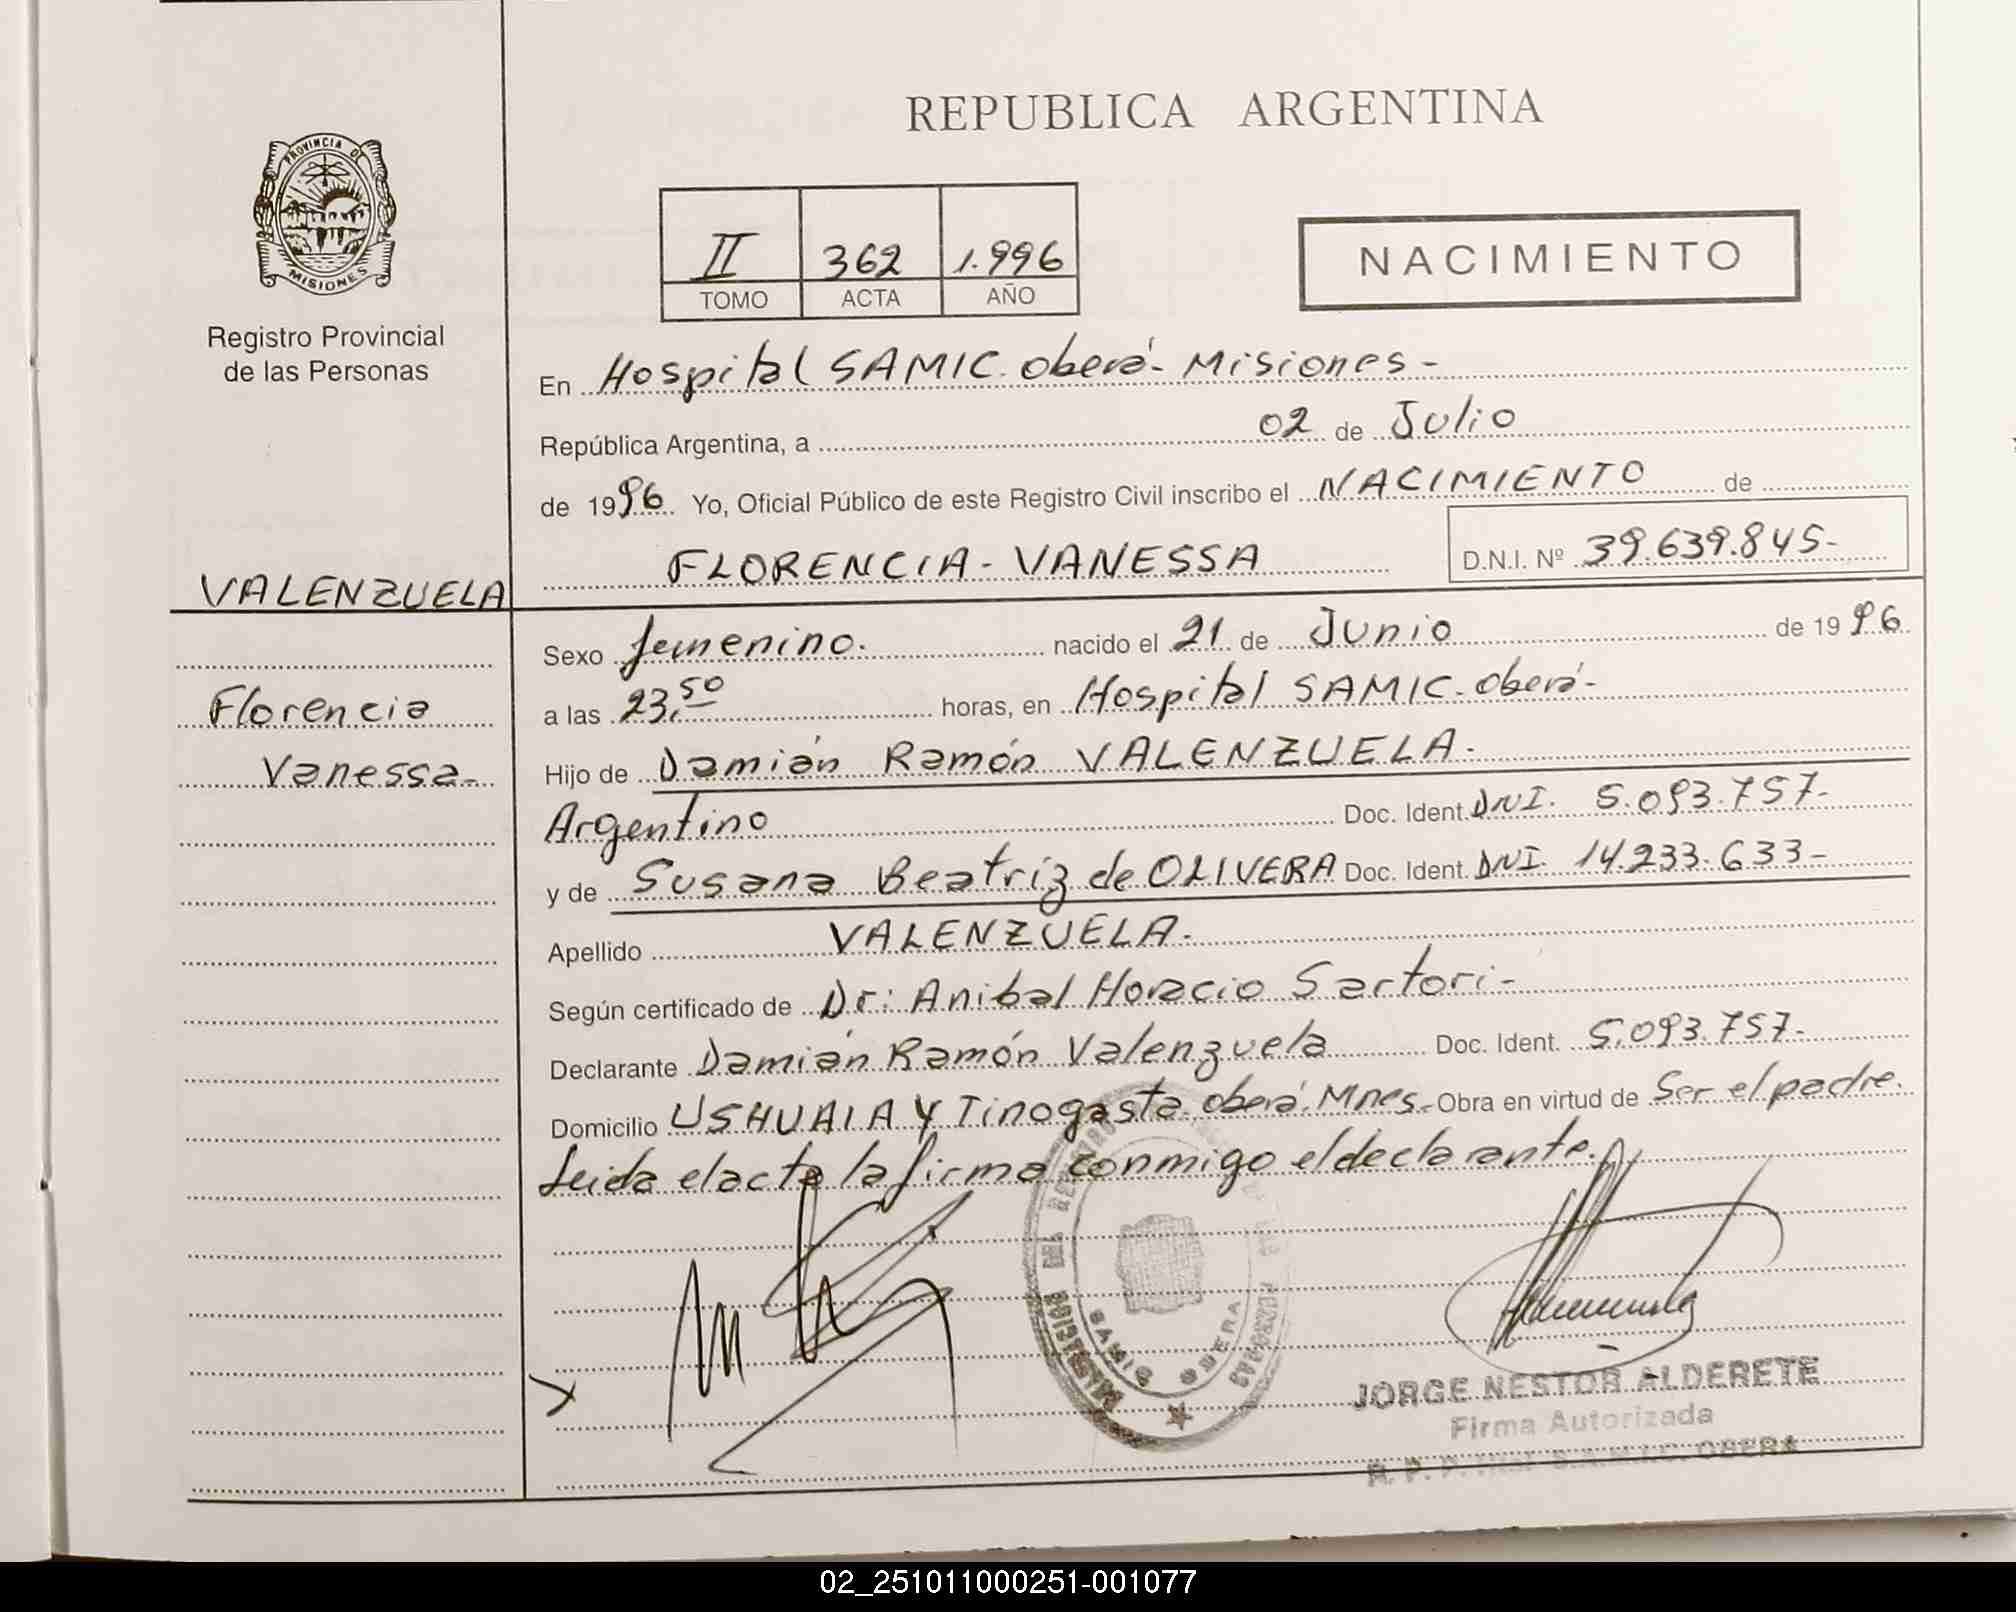 REPUBLICA ARGENTINA
PROVINCIA DE
MISIONES
Registro Provincial
de las Personas
II 362 1.996
TOMO ACTA AÑO
NACIMIENTO
En Hospital SAMIC. oberá- Misiones-
República Argentina, a 02 de Julio
de 1996. Yo, Oficial Público de este Registro Civil inscribo el NACIMIENTO de
FLORENCIA-VANESSA D.N.I. Nº 39.639.845-
VALENZUELA
Florencia
Vanessa-
Sexo femenino. nacido el 21 de Junio de 1996
a las 23,50 horas, en Hospital SAMIC-Oberá-
Hijo de Damián Ramón VALENZUELA.
Argentino Doc. Ident. DNI. 5.093.757-
y de Susana Beatríz de OLIVERA Doc. Ident. DNI. 14.233.633-
Apellido VALENZUELA.
Según certificado de Dr: Anibal Horacio Sartori-
Declarante Damián Ramón Valenzuela Doc. Ident. 5.093.757-
Domicilio USHUAIA y Tinogasta. oberá. Mnes- Obra en virtud de Ser el padre.
Leida el acta la firma conmigo el declarante.
SAMIC OBERA
JORGE NESTOR ALDERETE
Firma Autorizada
S.A.M.I.C. OBERA
02_251011000251-001077